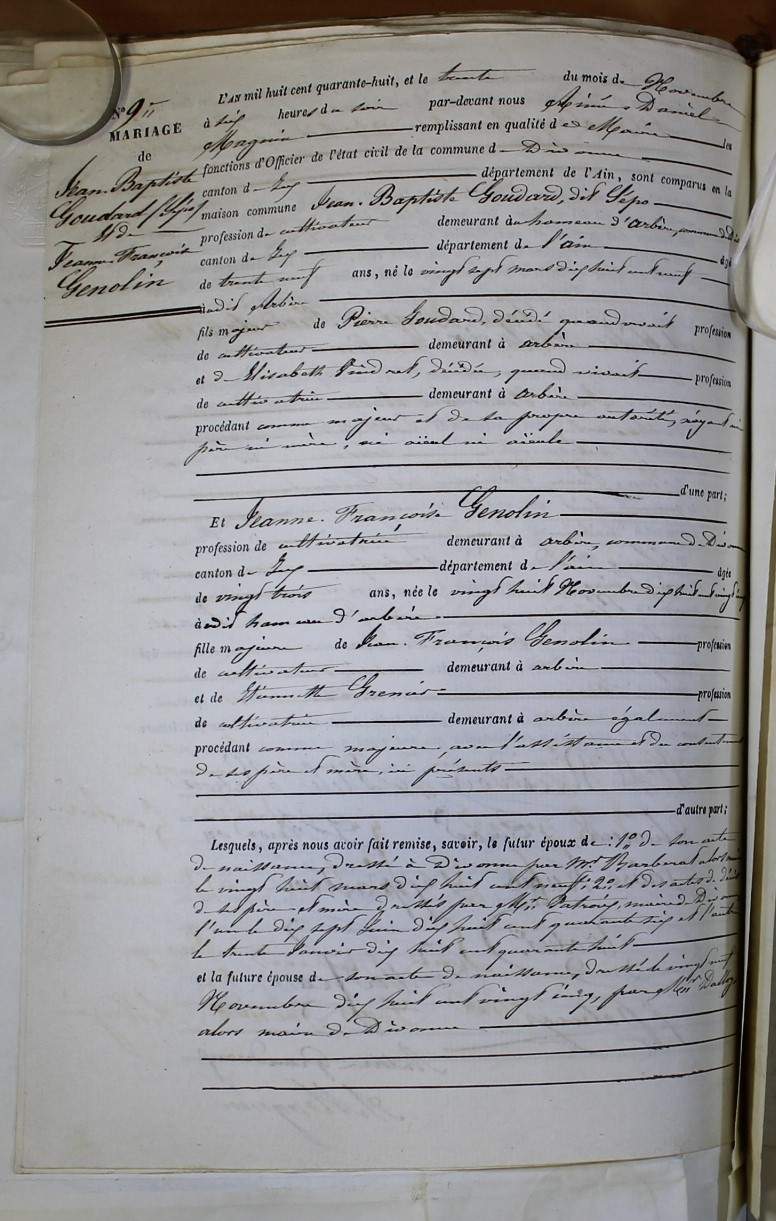 N° 9
MARIAGE
de
Jean-Baptiste
Goudard (Sépo)
& de
Jeanne-Françoise
Genolin
L'AN mil huit cent quarante-huit, et le trente du mois de Novembre
à six heures du soir par-devant nous Aimé Daniel
Magnin remplissant en qualité de Maire les
fonctions d'Officier de l'état civil de la commune de Divonne
canton de Gex département de l'Ain, sont comparus en la
maison commune Jean-Baptiste Goudard, dit Sépo
profession de cultivateur demeurant au hameau d'arbère, commune de Div
canton de Gex département de l'ain âgé
de trente neuf ans, né le vingt sept mars dix huit cent neuf
audit Arbère
fils majeur de Pierre Goudard, décédé quand vivait profession
de cultivateur demeurant à arbère
et d'Elisabeth décédée, quand vivait profession
de cultivatrice demeurant à arbère
procédant comme majeur et de sa propre autorité, n'ayant ni
père ni mère, ni aïeul ni aïeule
d'une part;
Et Jeanne-Françoise Genolin
profession de cultivatrice, demeurant à arbère, commune de Divonne
canton de Gex département de l'ain âgée
de vingt trois ans, née le vingt huit Novembre dix huit cent vingt cinq
audit hameau d'arbère
fille majeure de Jean-François Genolin profession
de cultivateur demeurant à arbère
et de Etiennette Grenier profession
de cultivatrice demeurant à arbère également
procédant comme majeure, avec l'assistance et du consentement
de ses père et mère, ici présents
d'autre part;
Lesquels, après nous avoir fait remise, savoir, le futur époux de : 1° de son acte
de naissance, dressé à Divonne par Mr Barberat alors maire
le vingt huit mars dix huit cent neuf; 2° et des actes de décès
de ses père et mère dressés par Mr maire de Divonne
l'un le dix sept Juin dix huit cent quarante six et l'autre
le trente Janvier dix huit cent quarante huit
et la future épouse de son acte de naissance, dressé le vingt neuf
Novembre dix huit cent vingt cinq, par Mr
alors maire de Divonne